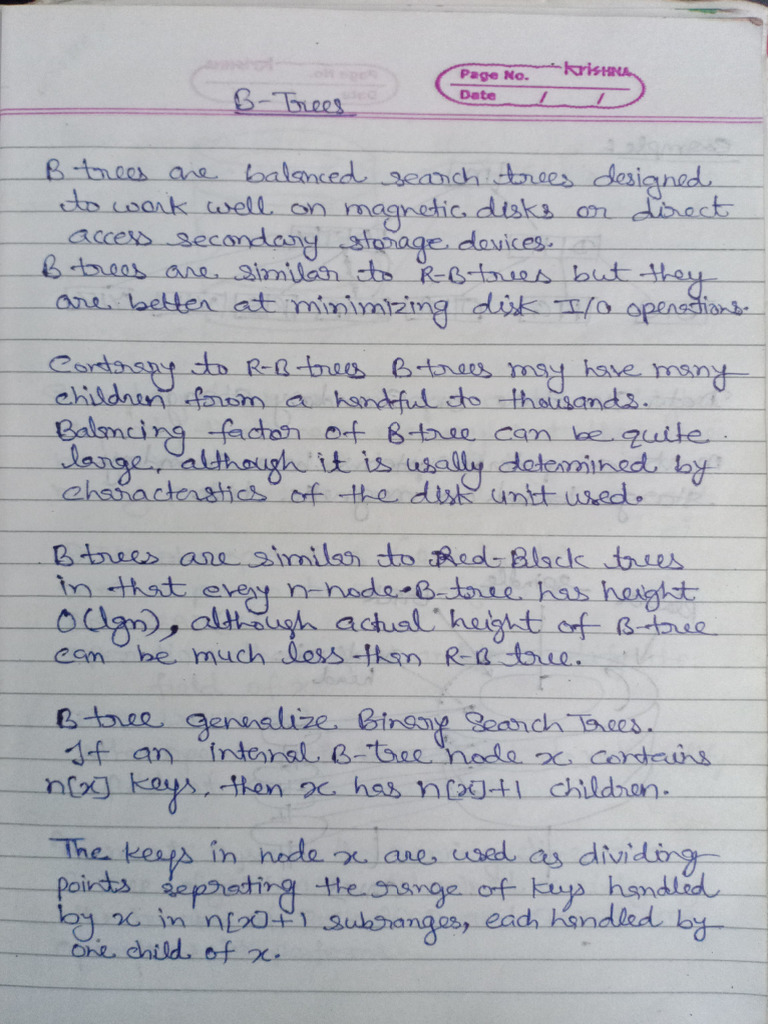 Page No. KRISHNA
Date / /
B-Trees
B trees are balanced search trees designed
to work well on magnetic disks or direct
access secondary storage devices.
B trees are similar to R-B trees but they
are better at minimizing disk I/O operations.
Contrary to R-B trees B trees may have many
children from a handful to thousands.
Balancing factor of B tree can be quite
large, although it is usally determined by
characterstics of the disk unit used.
B trees are similar to Red-Black trees
in that every n-node B-tree has height
O(lgn), although actual height of B-tree
can be much less than R-B tree.
B tree generalize Binary Search Trees.
If an internal B-tree node x contains
n[x] keys, then x has n[x]+1 children.
The keys in node x are used as dividing
points seprating the range of keys handled
by x in n[x]+1 subranges, each handled by
one child of x.